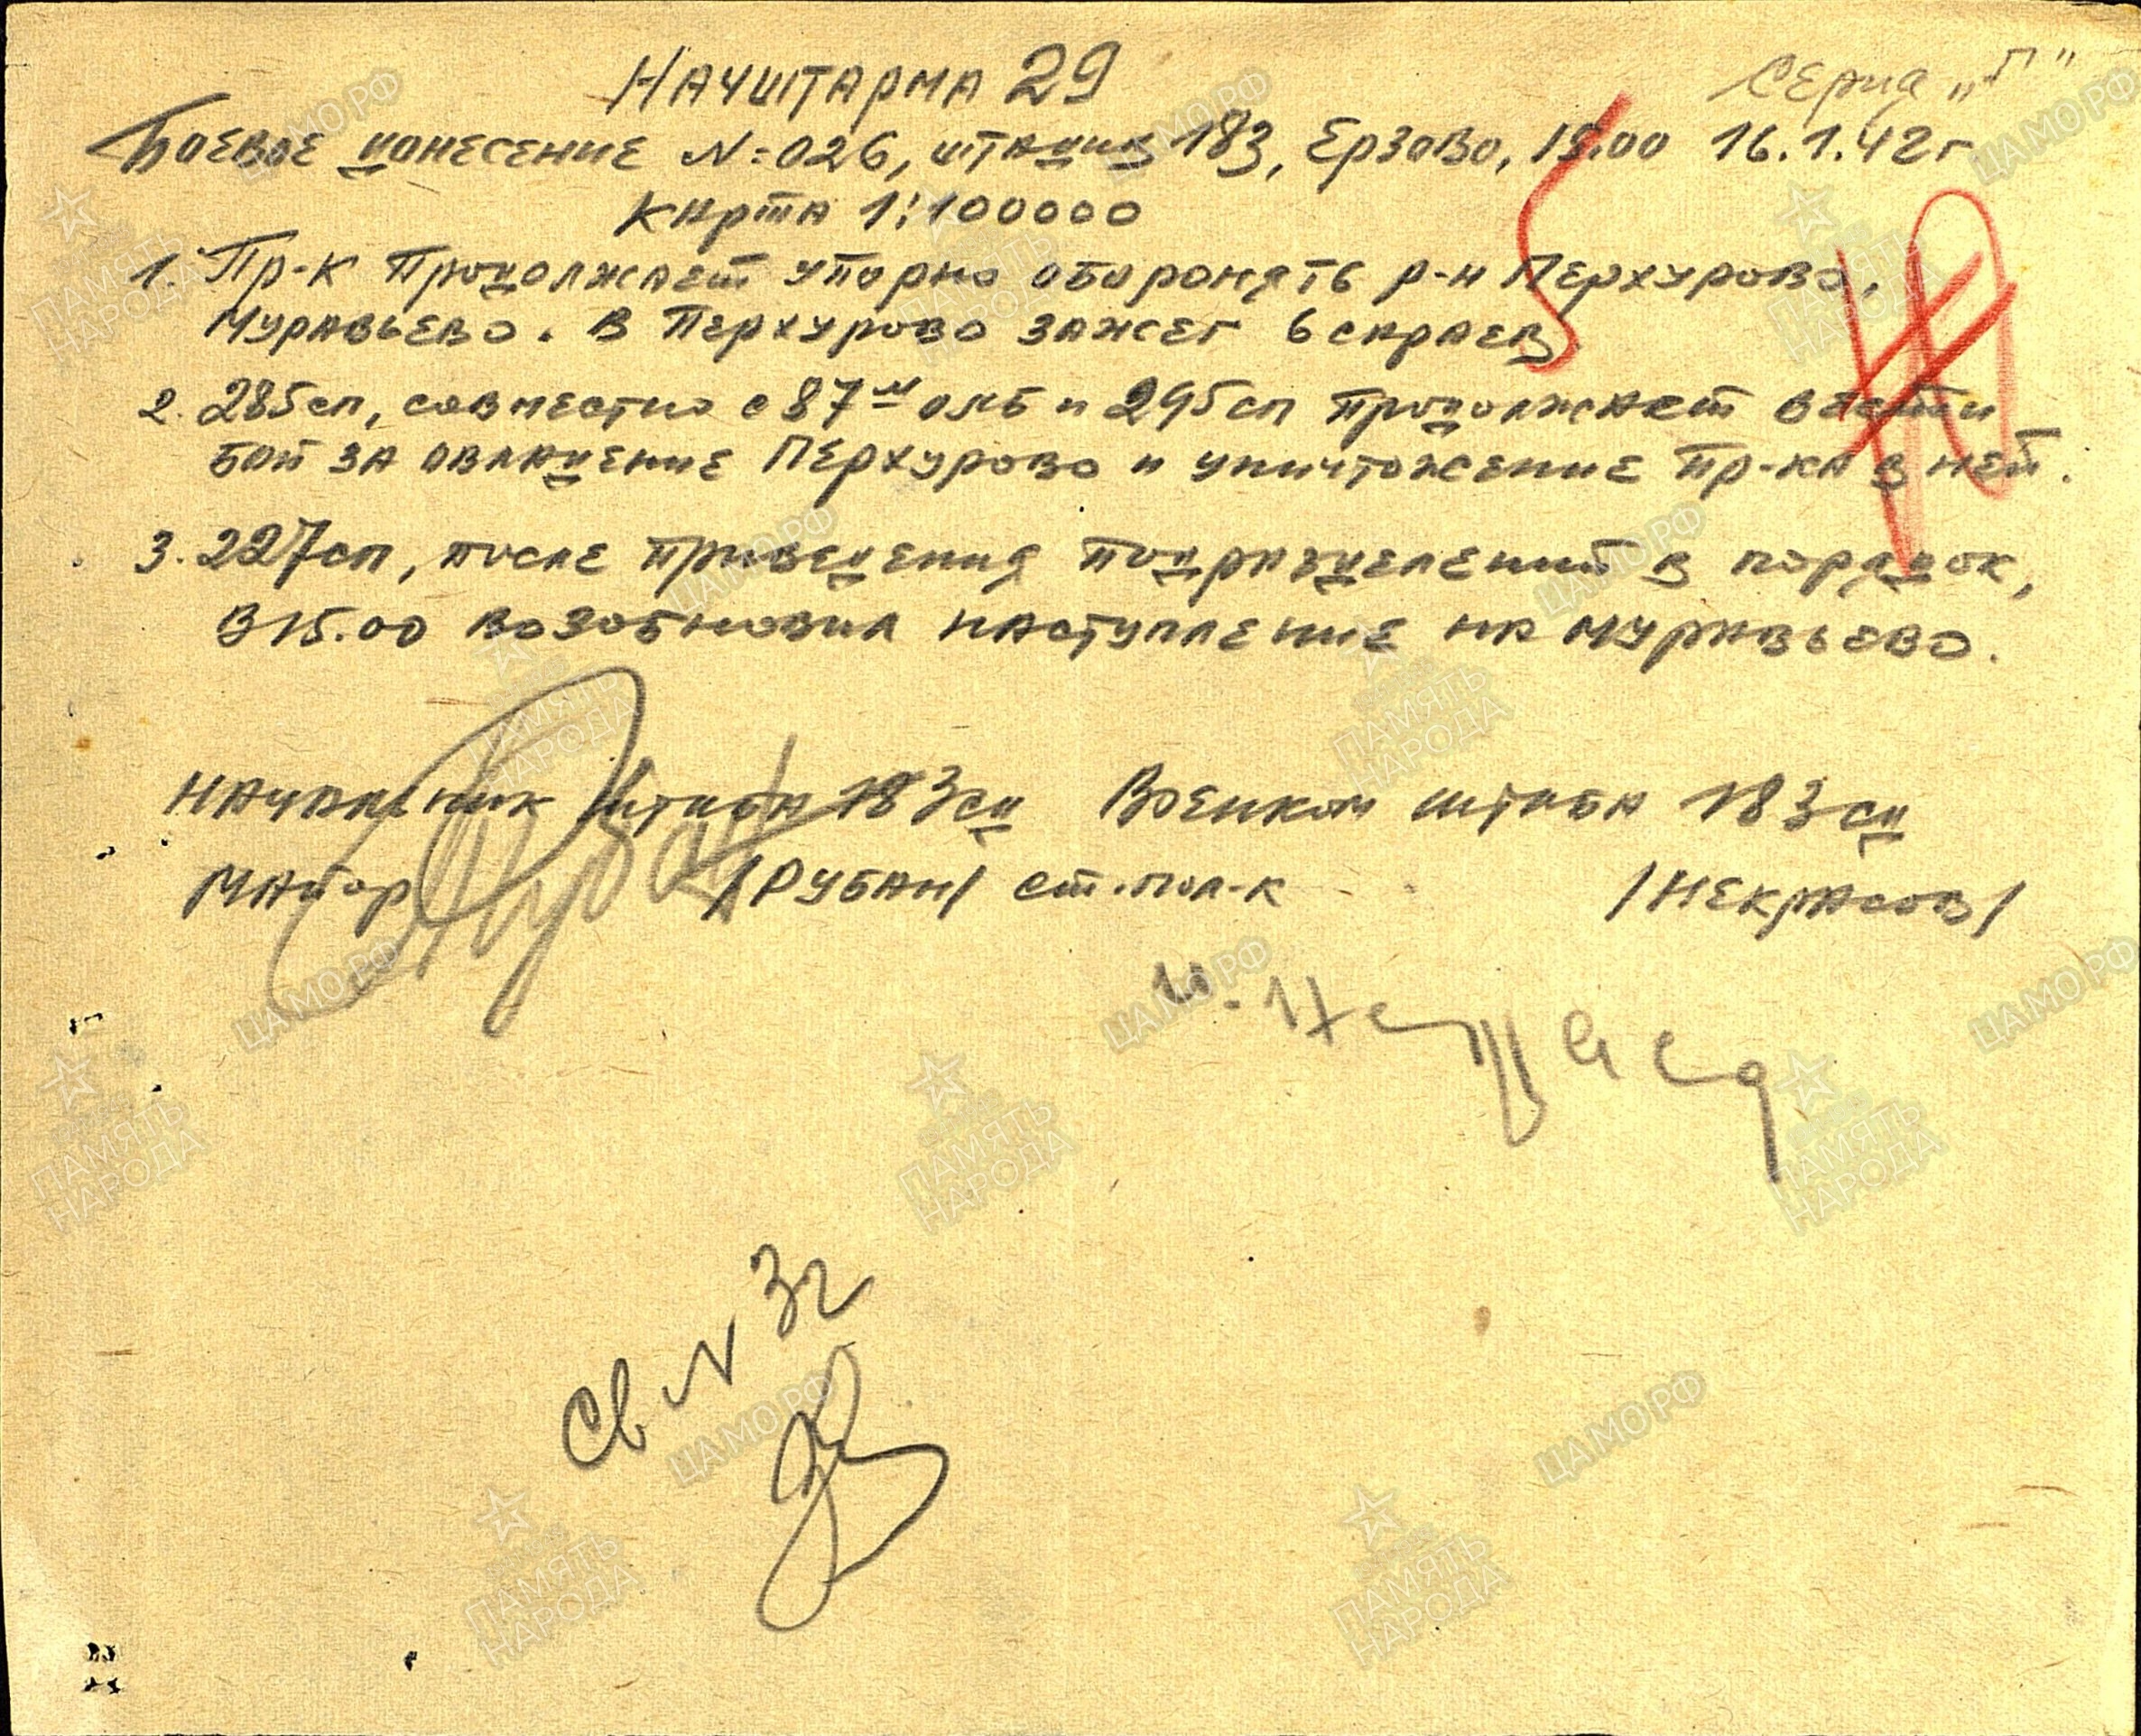 Серия „Г"
Начштарма 29
Боевое донесение №026, штадив 183, Ерзово, 15.00 16.1.42г
Карта 1:100000
1. Пр-к продолжает упорно оборонять р-н Перхурово,
Муравьево. В Перхурово зажег 6 сараев
2. 285сп, совместно с 87й омб и 295сп продолжает вести
бой за овладение Перхурово и уничтожение пр-ка в ней.
3. 227сп, после приведения подразделений в порядок,
в 15.00 возобновил наступление на Муравьево.
Начальник штаба 183сд Военком штаба 183сд
Майор /Рубан/ ст.пол-к /Некрасов/
Св N 32
ЦАМО.РФ
ПАМЯТЬ
НАРОДА